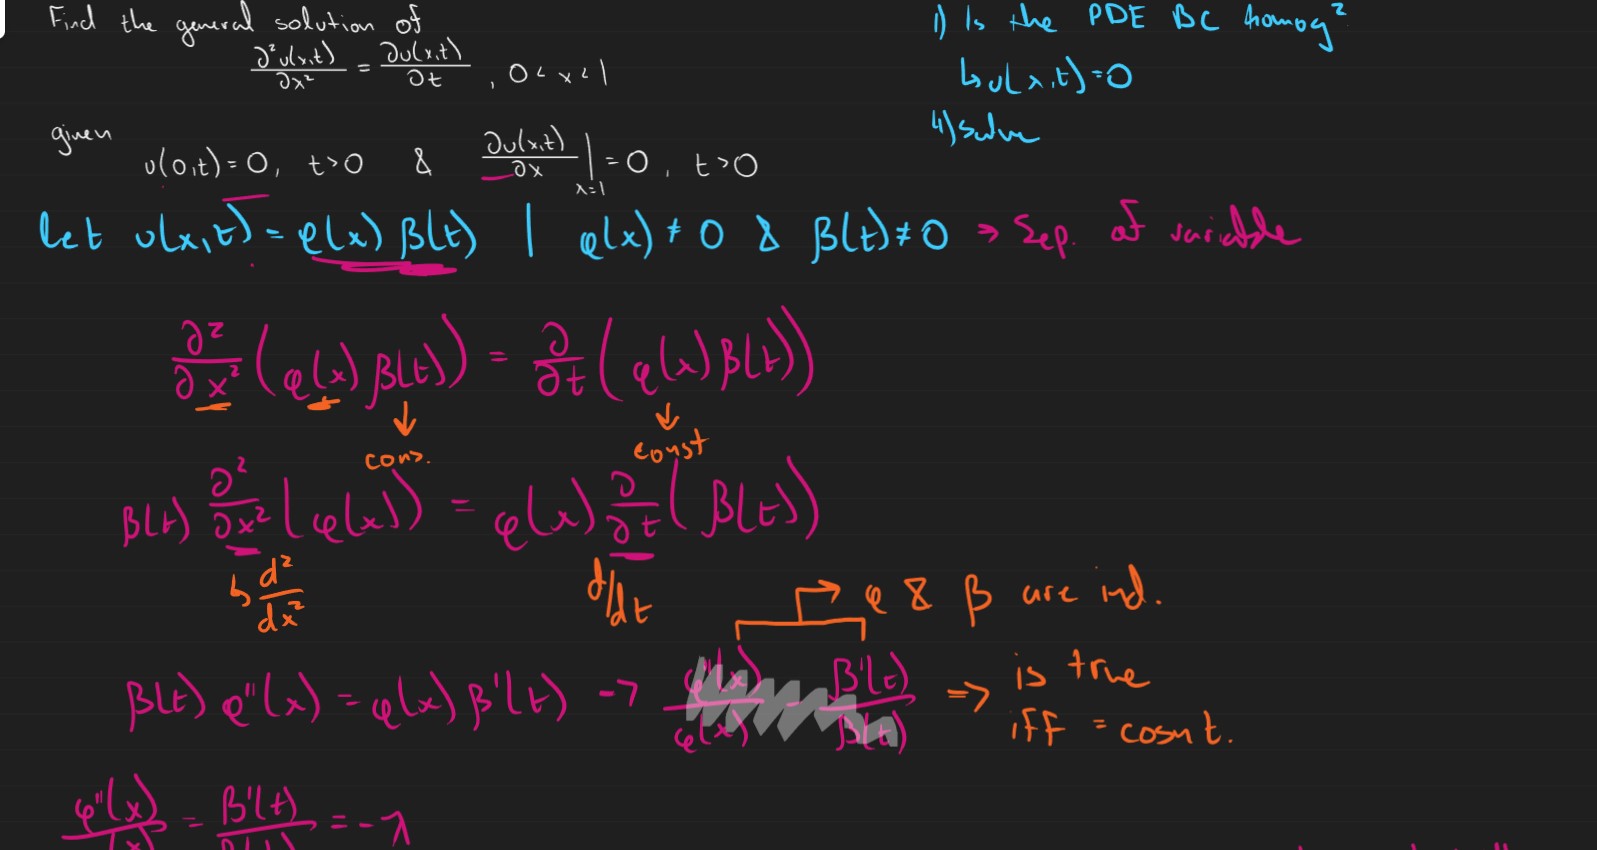 Find the general solution of
∂²u(x,t)/∂x² = ∂u(x,t)/∂t , 0 < x < 1
given
u(0,t) = 0, t > 0 & ∂u(x,t)/∂x |x=1 = 0, t > 0
1) Is the PDE BC homog?
↳ u(x,t) = 0
4) Solve
let u(x,t) = φ(x) β(t) | φ(x) ≠ 0 & β(t) ≠ 0 → Sep. of variable
∂²/∂x² (φ(x) β(t)) = ∂/∂t (φ(x) β(t))
↓ cons. ↓ const
β(t) ∂²/∂x² (φ(x)) = φ(x) ∂/∂t (β(t))
↳ d²/dx² d/dt
→ φ & β are ind.
β(t) φ''(x) = φ(x) β'(t) → φ''(x)/φ(x) = β'(t)/β(t) ⇒ is true
iff = cosnt.
φ''(x)/φ(x) = β'(t)/β(t) = -λ